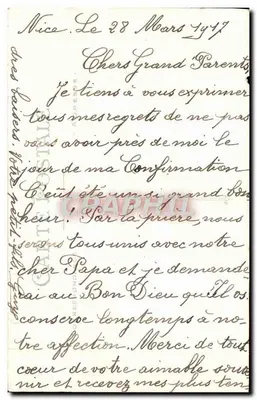 Nice, Le 28 Mars 1917
Chers Grand Parents,
Je tiens à vous exprimer
tous mes regrets de ne pas
vous avoir près de moi le
jour de ma Confirmation
C'eût été un si grand bon
heur! Par la prière, nous
serons tous unis avec notre
cher Papa et je demande
rai au Bon Dieu qu'Il vs
conserve longtemps à no-
tre affection. Merci de tout
cœur de votre aimable souve
nir et recevez mes plus ten
dres baisers, Votre petit-fils,
CARTE POSTALE